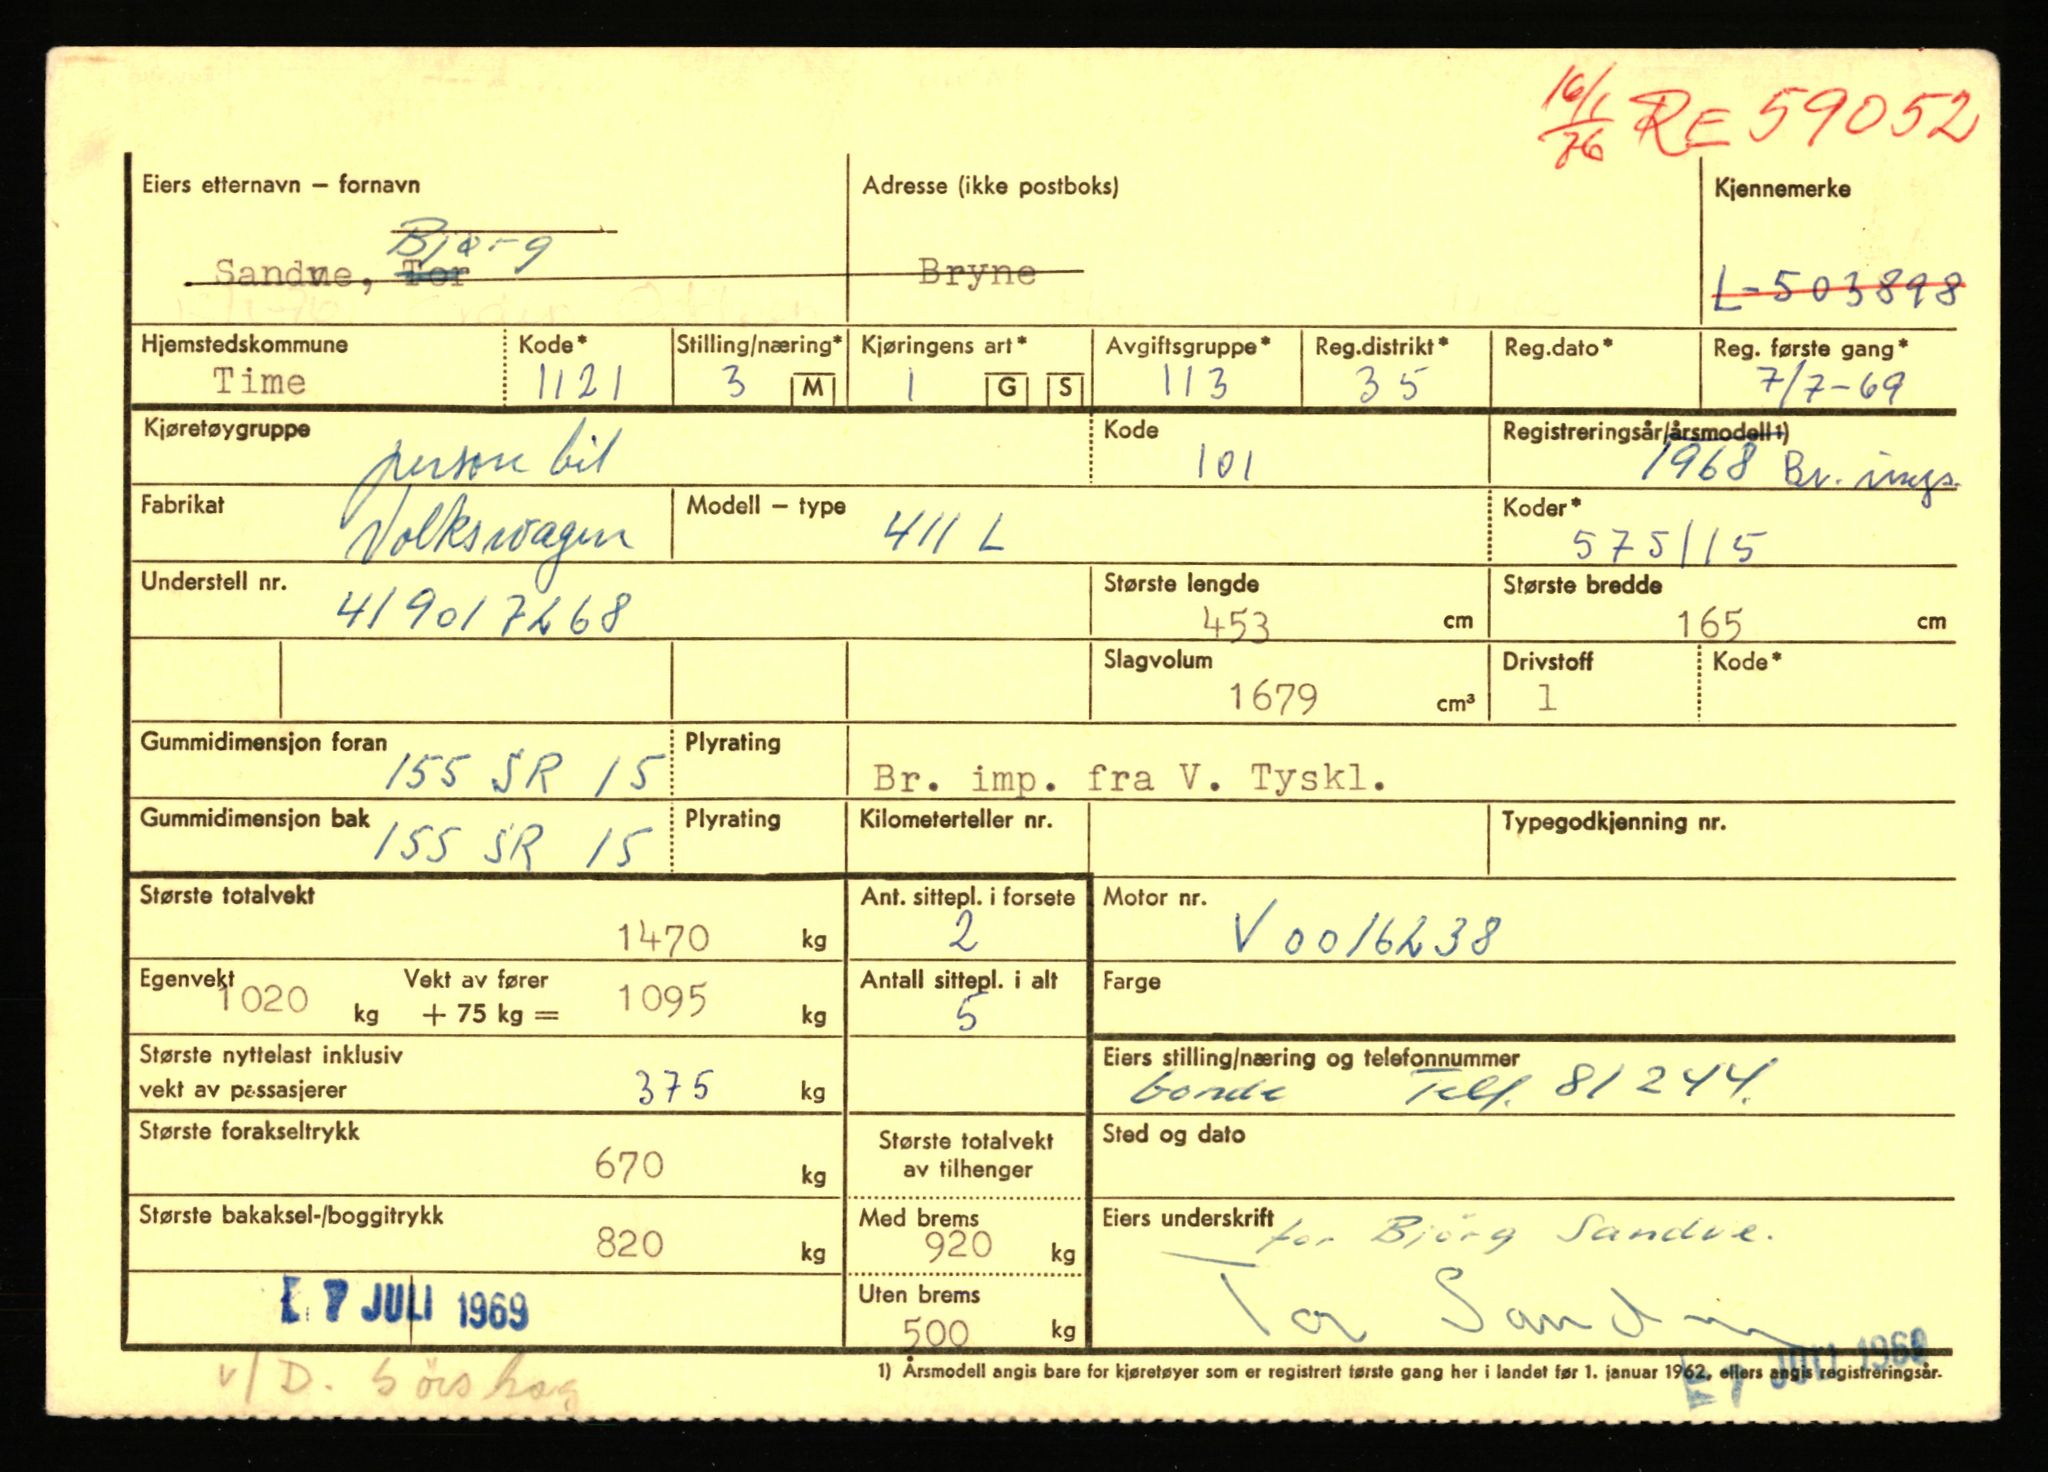 16/1 76 RE 59052
Eiers etternavn – fornavn Adresse (ikke postboks) Kjennemerke
Bjørg
Sandve, Tor Bryne L-503898
Hjemstedskommune Kode* Stilling/næring* Kjøringens art* Avgiftsgruppe* Reg.distrikt* Reg.dato* Reg. første gang*
Time 1121 3 M 1 G S 113 35 7/7-69
Kjøretøygruppe Kode Registreringsår/årsmodell 1)
personbil 101 1968 Br.
Fabrikat Modell – type Koder*
Volkswagen 411 L 575115
Understell nr. Største lengde Største bredde
419017268 453 cm 165 cm
Slagvolum Drivstoff Kode*
1679 cm³ 1
Gummidimensjon foran Plyrating
155 SR 15 Br. imp. fra V. Tyskl.
Gummidimensjon bak Plyrating Kilometerteller nr. Typegodkjenning nr.
155 SR 15
Største totalvekt Ant. sittepl. i forsete Motor nr.
1470 kg 2 V 0016238
Egenvekt Vekt av fører Antall sittepl. i alt Farge
1020 kg + 75 kg = 1095 kg 5
Største nyttelast inklusiv Eiers stilling/næring og telefonnummer
vekt av passasjerer 375 kg bonde Telf. 81244.
Største forakseltrykk Største totalvekt Sted og dato
670 kg av tilhenger
Største bakaksel-/boggitrykk Med brems Eiers underskrift
820 kg 920 kg for Bjørg Sandve.
Uten brems Tor Sandve
7 JULI 1969 500 kg
7 JULI 1969
1) Årsmodell angis bare for kjøretøyer som er registrert første gang her i landet før 1. januar 1962, ellers angis registreringsår.
v/D.